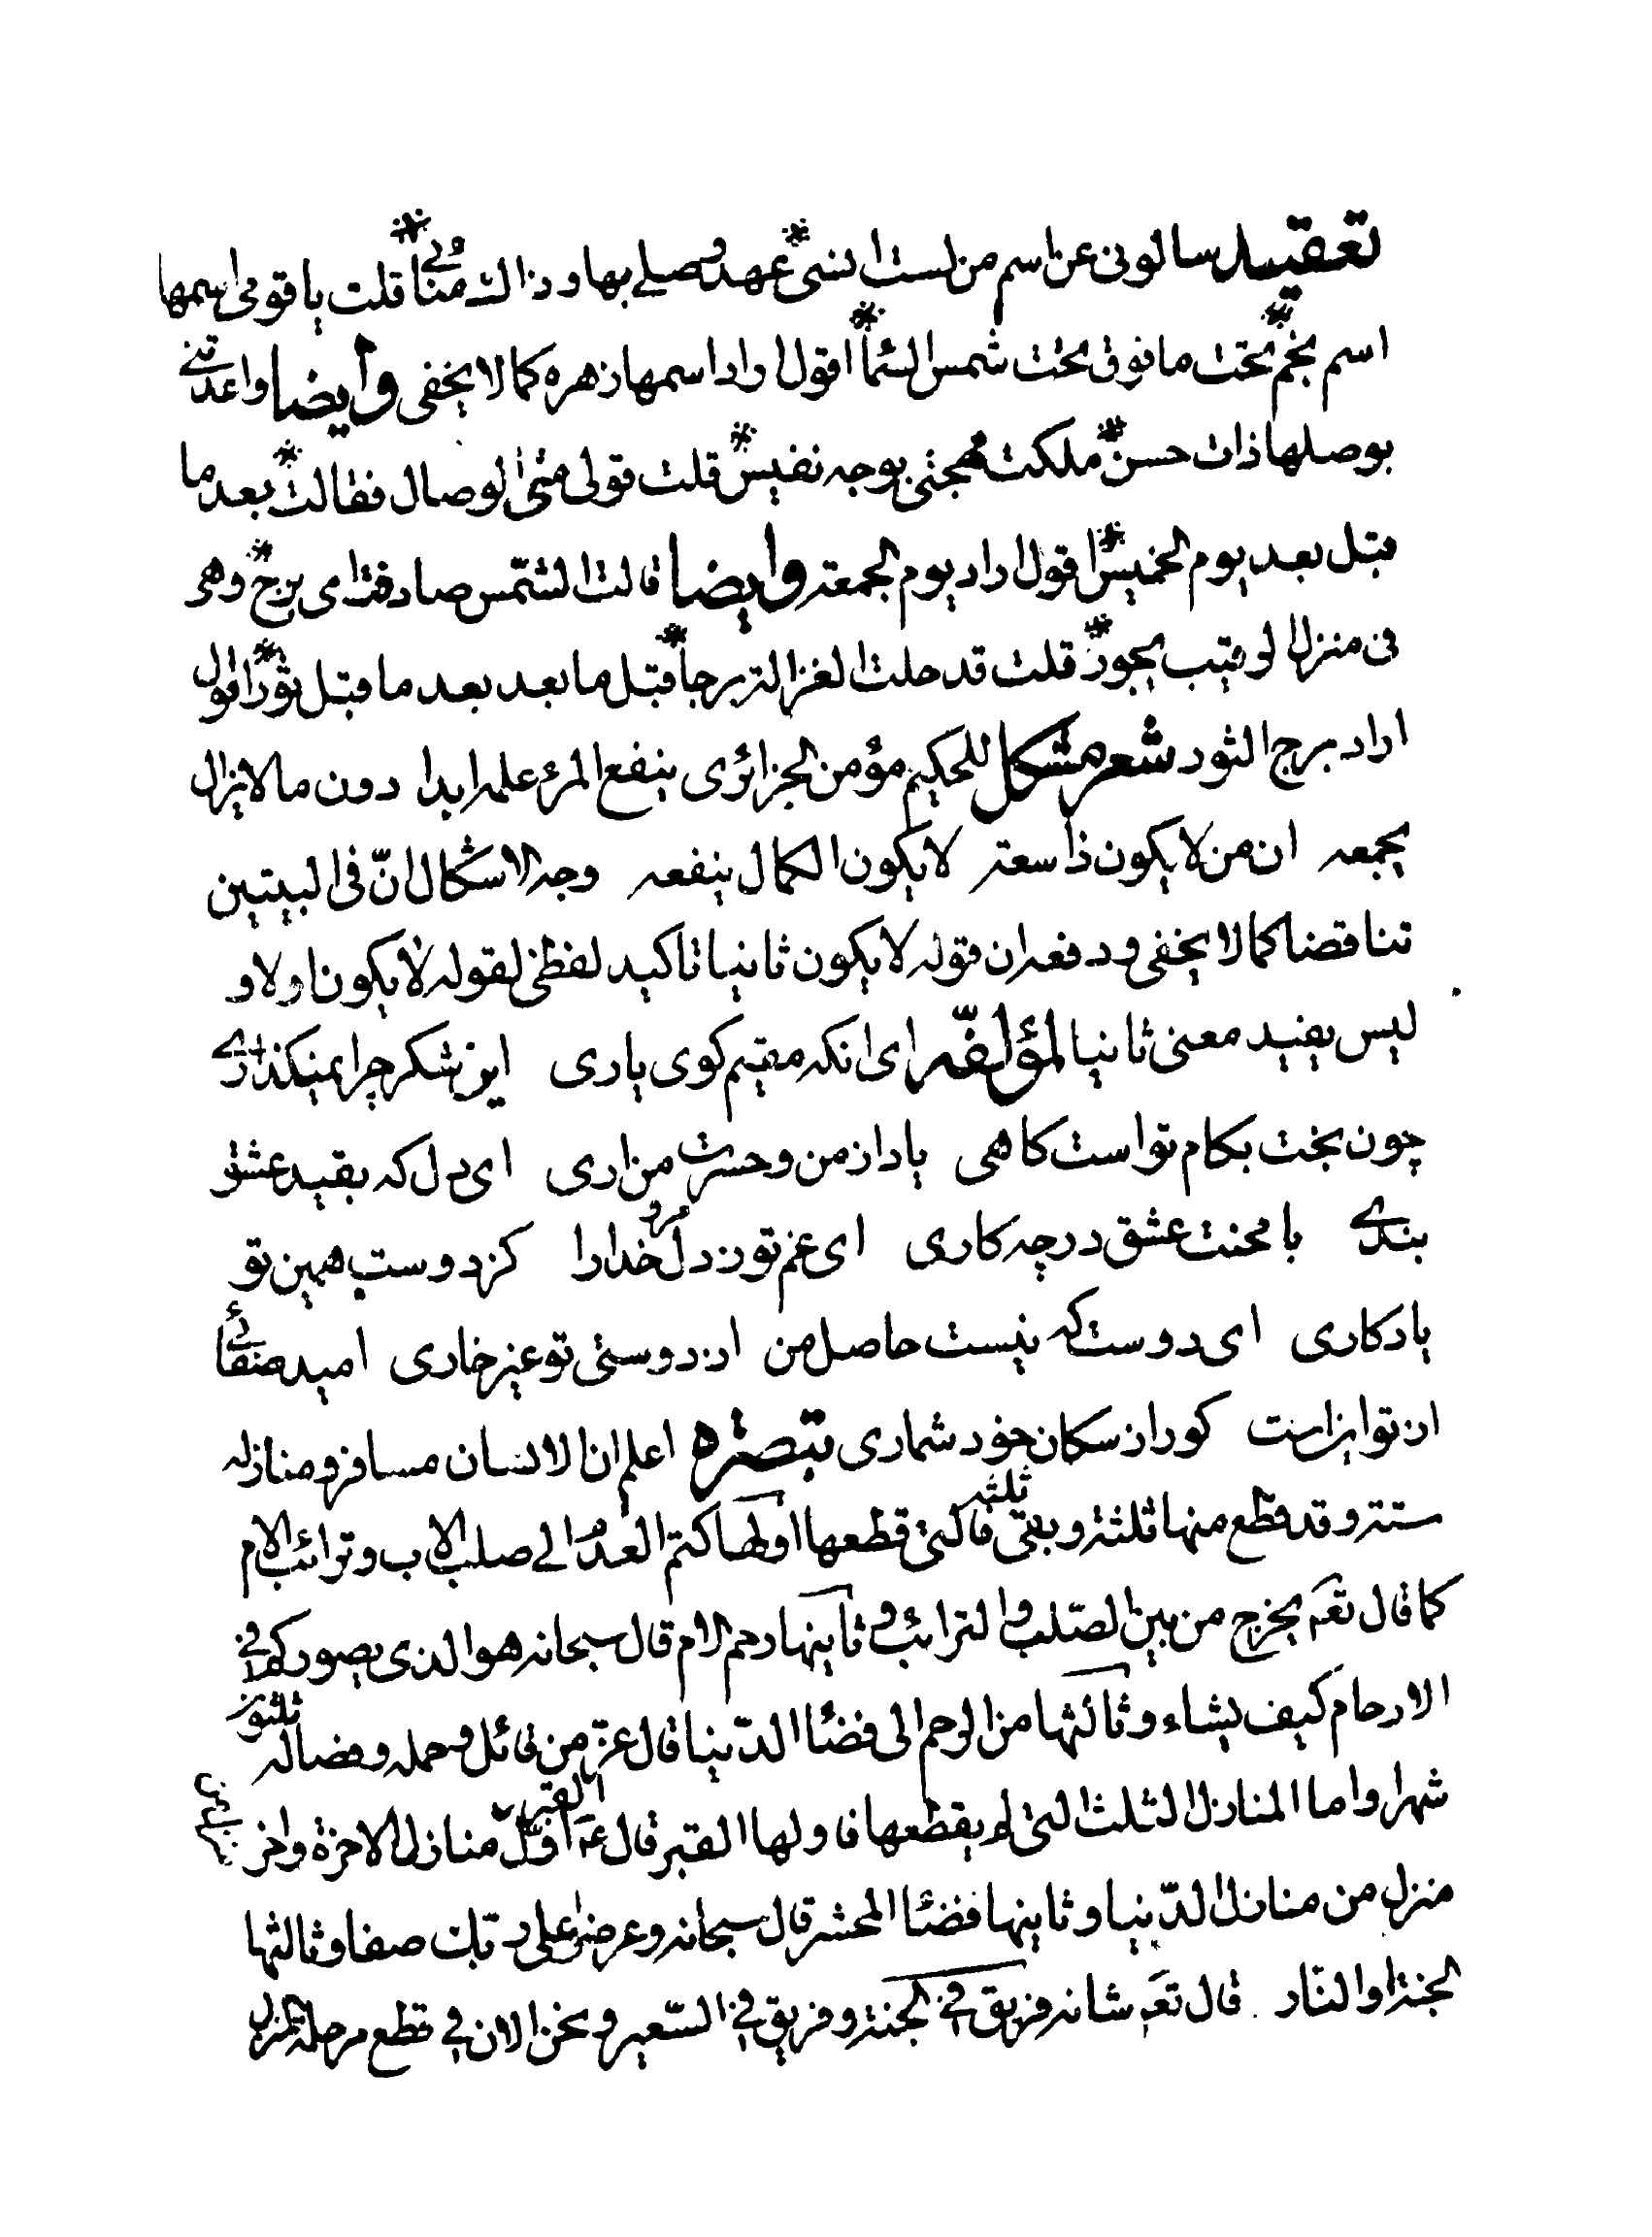 تعقيد سالوني عن اسم من لست انسى عهد وصلي بها وذاك منائي قلت يا قومي اسمها
اسم نجم تحت ما فوق تحت شمس السماء اقول اراد اسمها زهره كما لا يخفى وايضا واعدتني
بوصلها ذات حسن ملكت مهجتي بوجه نفيس قلت قولي متى الوصال فقالت بعد ما
قبل بعد يوم الخميس اقول اراد يوم الجمعة وايضا قالت الشمس صادفت اى برج وهى
فى منزل لو قيب يجور قلت قد حلت الغزالة برجا قبل ما بعد بعد ما قبل ثور اقول
اراد برج الثور شعر مشكل للحكيم مؤمن الجزائرى ينفع المرء علمه ابدا دون ما لا يزال
يجمعه ان من لا يكون ذا سعة لا يكون الكمال ينفعه وجه الاشكال انّ فى البيتين
تناقضا كما لا يخفى ودفعه ان قوله لا يكون ثانيا تاكيد لفظى لقوله لا يكون اولا و
ليس يفيد معنى ثانيا لمؤلفّه اى انكه مقيم كوى يارى اين شكر چرا نميكذارى
چون بخت بكام تو است كاهى ياد از من و حسرت من ارى اى دل كه بقيد عشق
بندى با محنت عشق در چه كارى اى غم تو ز دل مرو خدا را كز دوست همين تو
يادكارى اى دوست كه نيست حاصل من از دوستى تو غير خارى اميد صفائى
از تو اينست كو را ز سكان خود شمارى تبصرة اعلم ان الانسان مسافر ومنازله
ستة وقد قطع منها ثلثة وبقى ثلثه فالتى قطعها اولها كتم العدم الى صلب الاب وترائب الام
كما قال تعه يخرج من بين الصّلب والترائب وثانيها رحم الام قال سبحانه هو الذى يصوركم فى
الارحام كيف يشاء وثالثها من الرحم الى فضاء الدّنيا قال عزّ من قائل وحمله وفصاله ثلثون
شهرا واما المنازل الثلث التى لم يقطعها فاولها القبر قال عه القبر اوّل منازل الاخرة واخر
منزل من منازل الدّنيا وثانيها فضاء المحشر قال سبحانه وعرضوا على ربّك صفا وثالثها
الجنة او النّار قال تعه شانه فريق فى الجنة وفريق فى السّعير ونحن الان فى قطع مرحلة المنزل